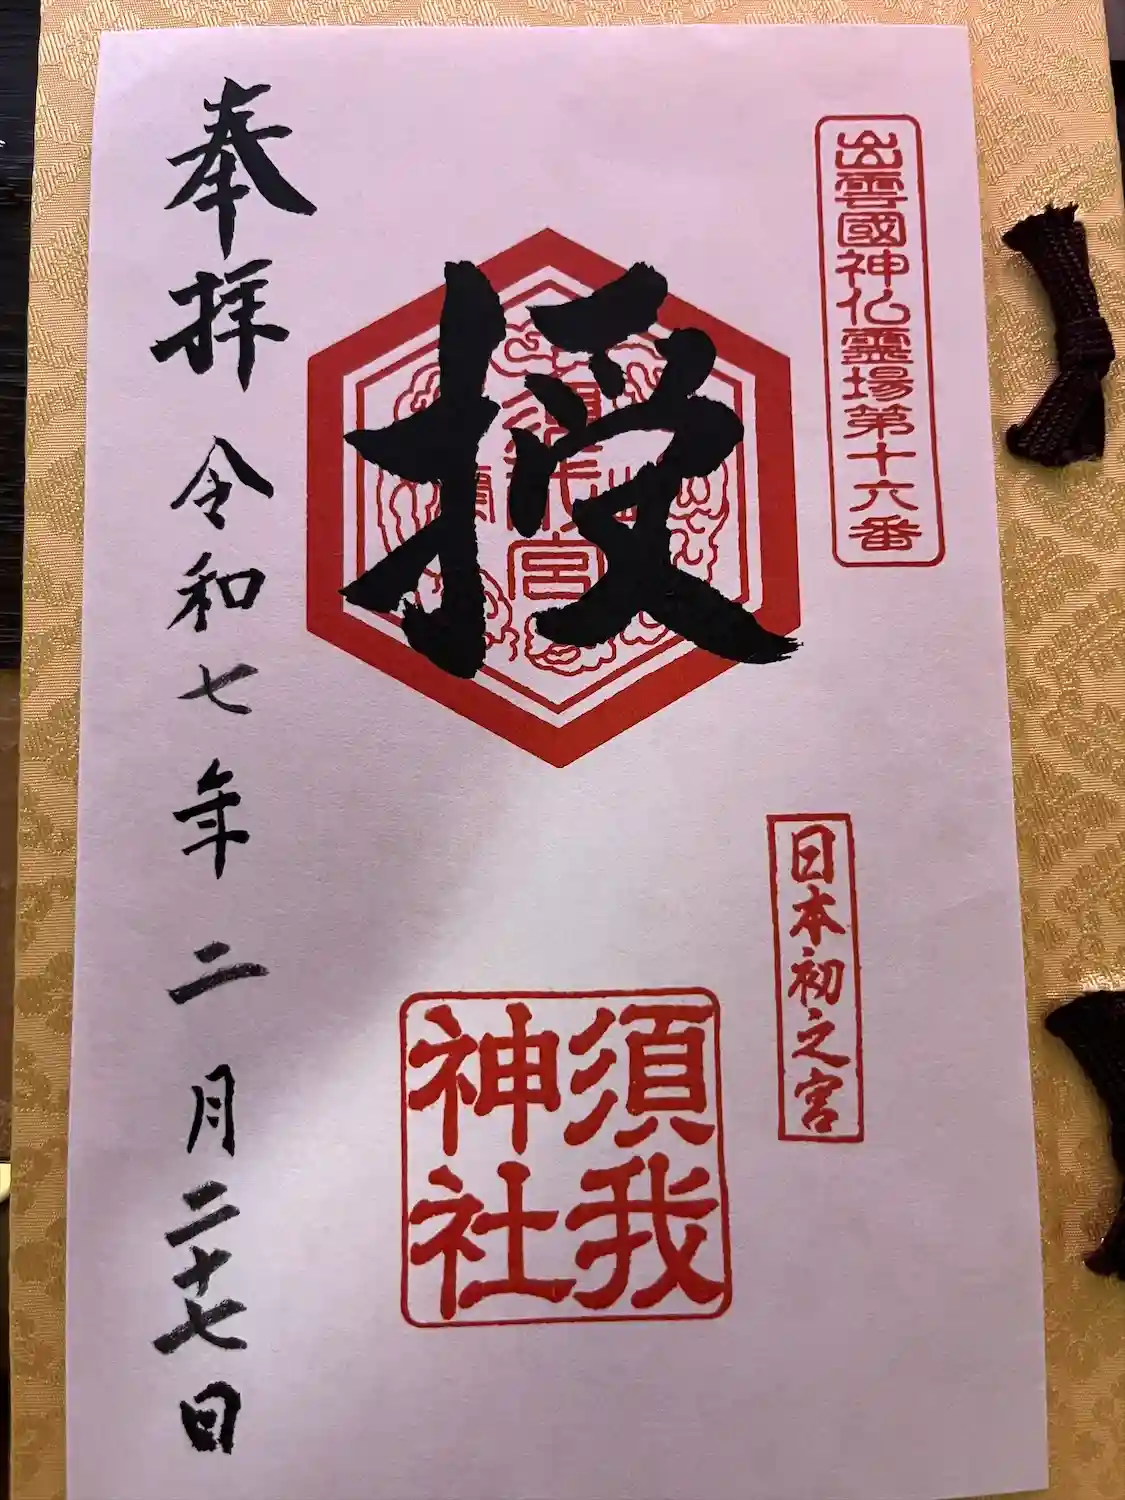 出雲國神仏霊場第十六番
日本初之宮
授
須我
神社
奉拝
令和七年二月二十七日